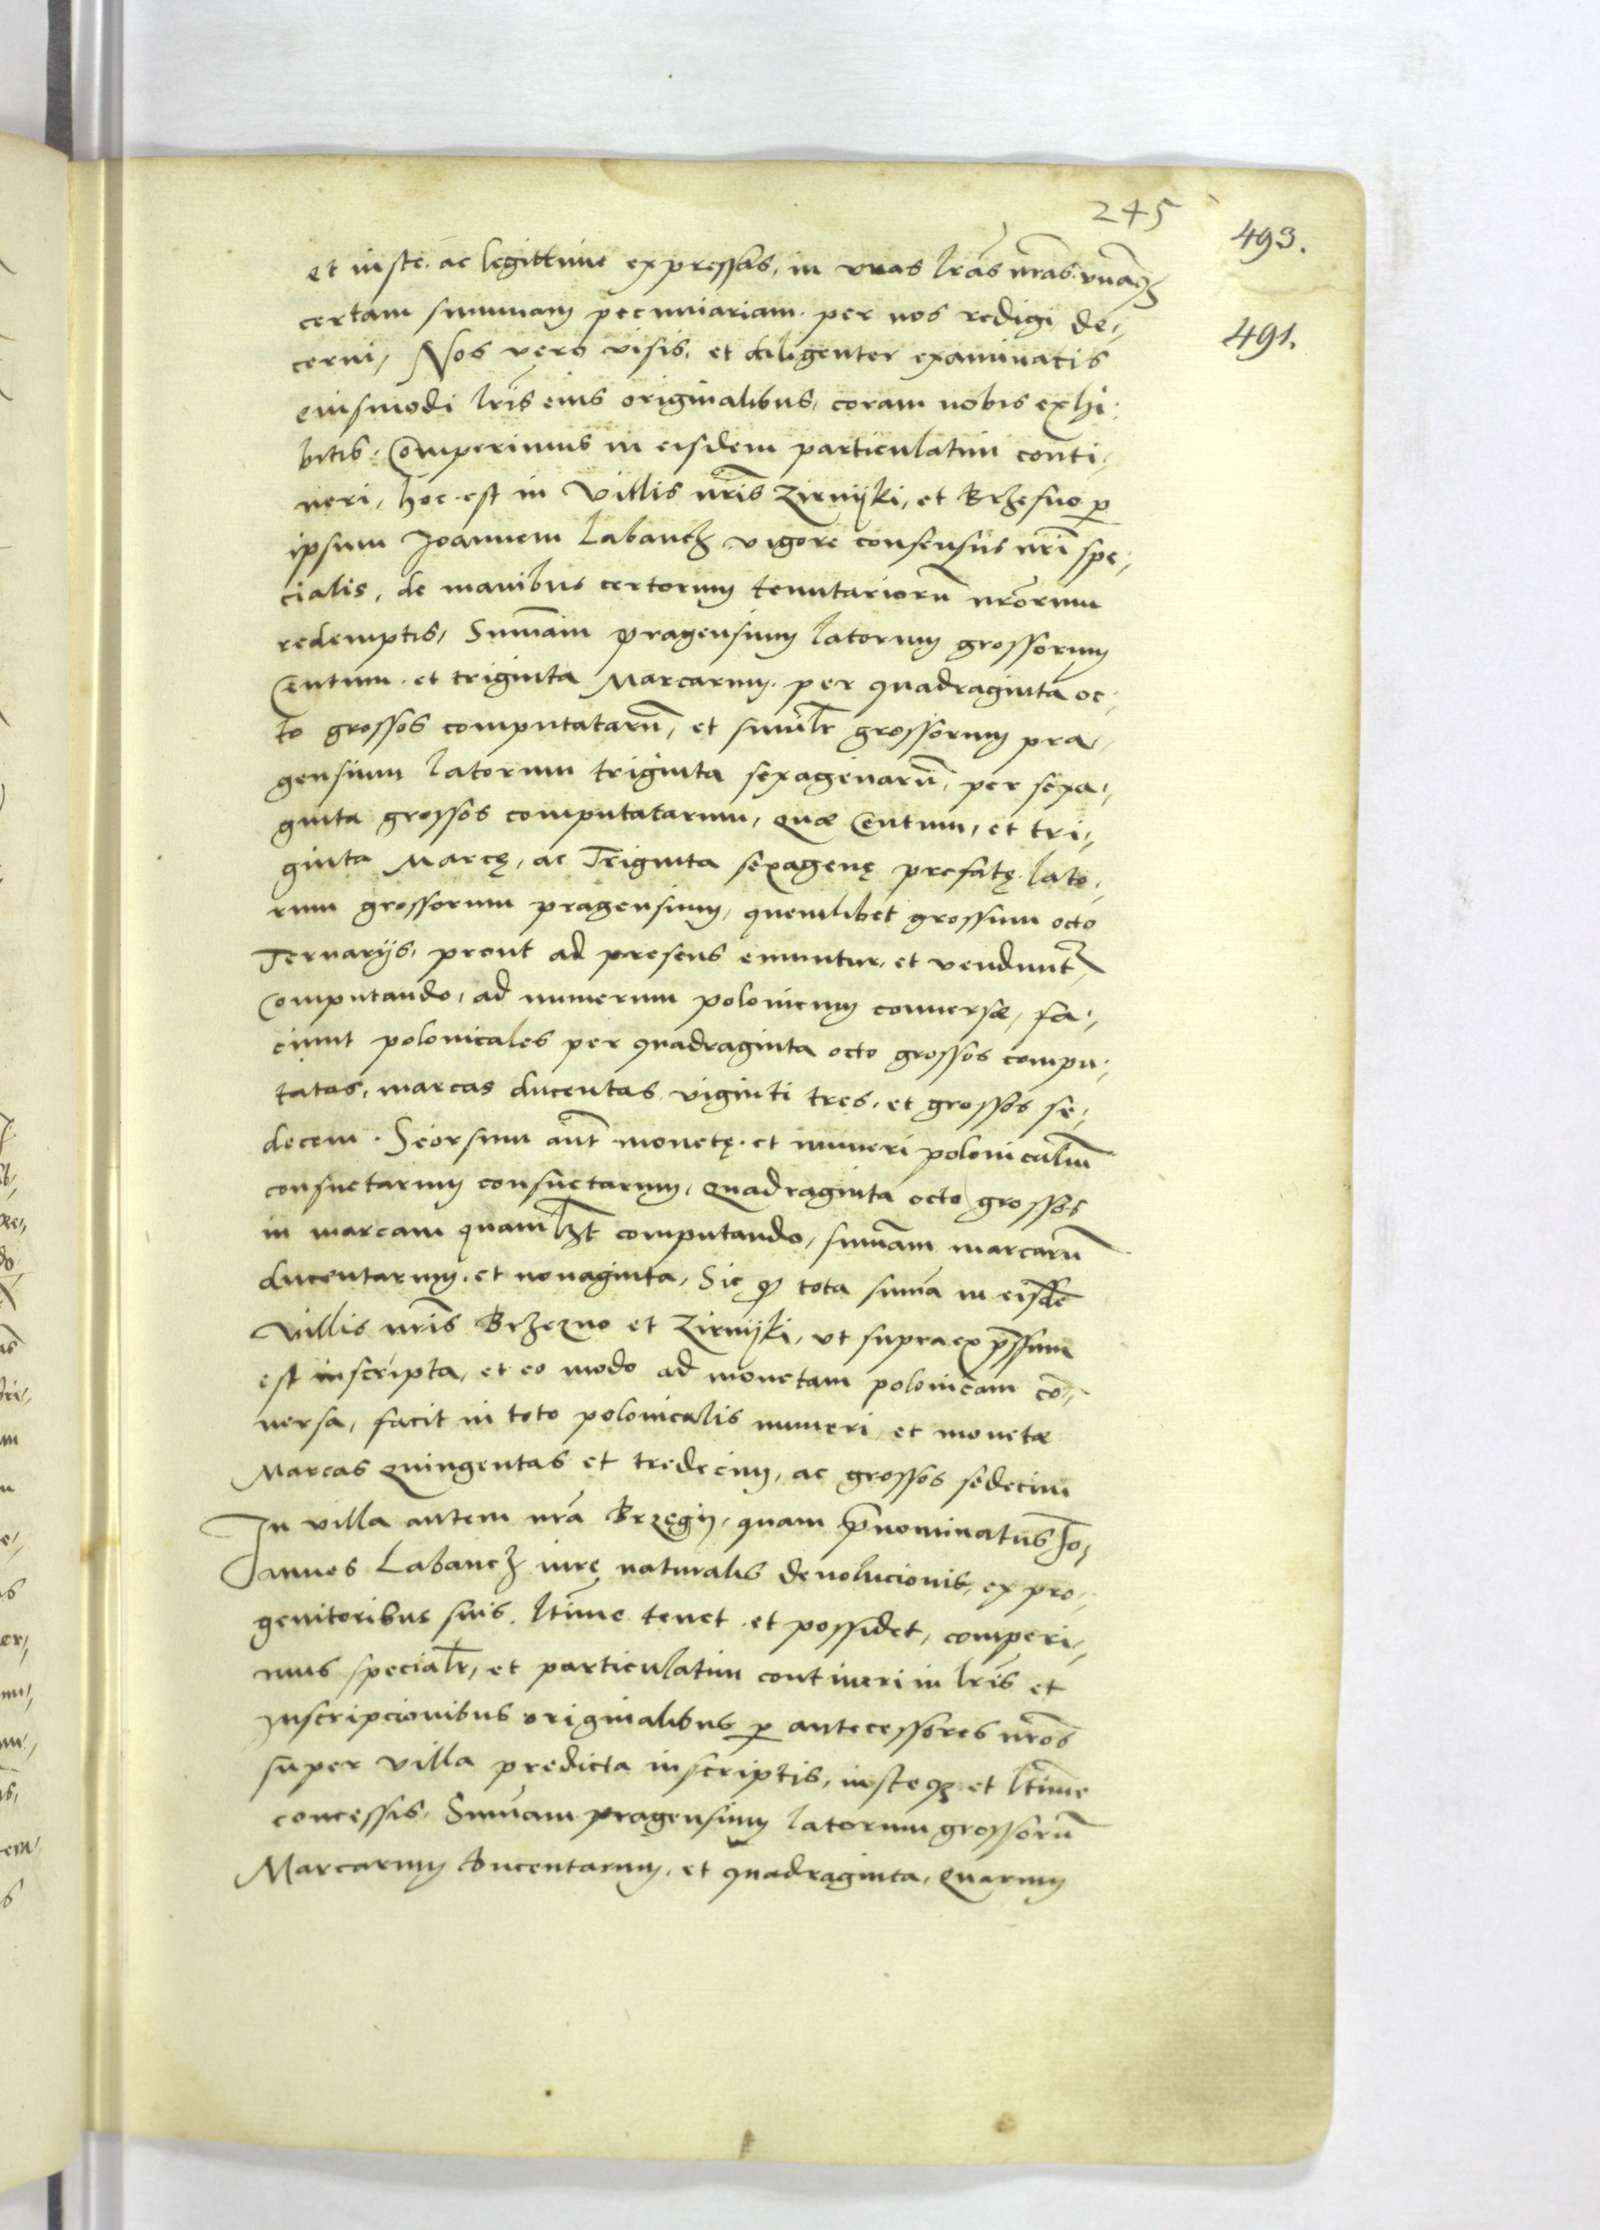 245
493.
491.
et iuste ac legittime expressas, in vnas lr̃as nr̃as vnãqʒ
certam summam pecuniariam per nos redigi de,
cerni, Nos vero visis, et diligenter examinatis
eiusmodi lr̃is eius originalibus, coram nobis exhi,
bitis. Comperimus in eisdem particulatim conti,
neri, hoc est in Villis nr̃is Zirnijki, et Brzesno ꝑ
ipsum Joannem Labancz vigore consensus nr̃i spe,
cialis, de manibus certorum tenutariorũ nr̃orum
redemptis, Sum̃am pragensium latorum grossorum
Centum et triginta Marcarum per quadraginta oc,
to grossos computatarũ, et simil̃r grossorum pra,
gensium latorum triginta sexagenarũ, per sexa,
ginta grossos computatarum, quæ Centum, et tri,
ginta Marcę, ac Triginta sexagenę prefatę lato,
rum grossorum pragensium, quemlibet grossum octo
Ternarijs, prout ad presens emuntur, et vendunt᷑
Computando, ad numerum polonicum conuersæ, fa,
ciunt polonicales per quadraginta octo grossos compu,
tatas, marcas ducentas viginti tres, et grossos se,
decem. Seorsum aũt monetę et numeri polonicaliũ
consuetarum consuetarum, quadraginta octo grossos
in marcam quamlꝫt computando, sum̃am marcarũ
ducentarum et nonaginta, Sic qꝫ tota sum̃a in eisdẽ
Villis nr̃is Brzezno et Zirnijki, vt supra exp̃ssum
est inscripta, et eo modo ad monetam polonicam cõ,
uersa, facit in toto polonicalis numeri et monetæ
Marcas quingentas et tredecim, ac grossos sedecim
In villa autem nr̃a Brzegij, quam p̃nominatus Jo,
annes Labancz iurę naturalis deuolucionis, ex pro,
genitoribus suis, l̃time tenet et possidet, comperi,
mus special̃r, et particulatim contineri in lr̃is et
Inscripcionibus originalibus ꝑ antecessores nr̃os
super villa predicta inscriptis, iusteqʒ et l̃time
concessis. Sum̃am pragensium latorum grossorũ
Marcarum ducentarum, et quadraginta, quarum